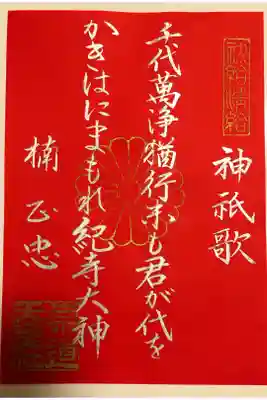 神祇歌
千代萬浄猶行末も君が代を
かきはにまもれ紀寺大神
楠正忠